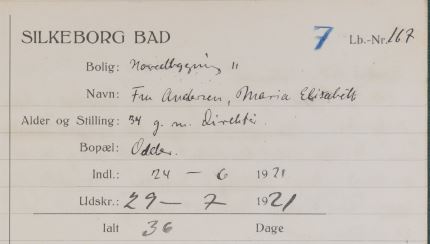 SILKEBORG BAD 7 Lb.-Nr. 167
Bolig: Hovedbygning "
Navn: Fru Andersen, Maria Elisabeth
Alder og Stilling: 34 g. m. Direktør.
Bopæl: Odder.
Indl.: 24 — 6 1921
Udskr.: 29 — 7 1921
Ialt 36 Dage